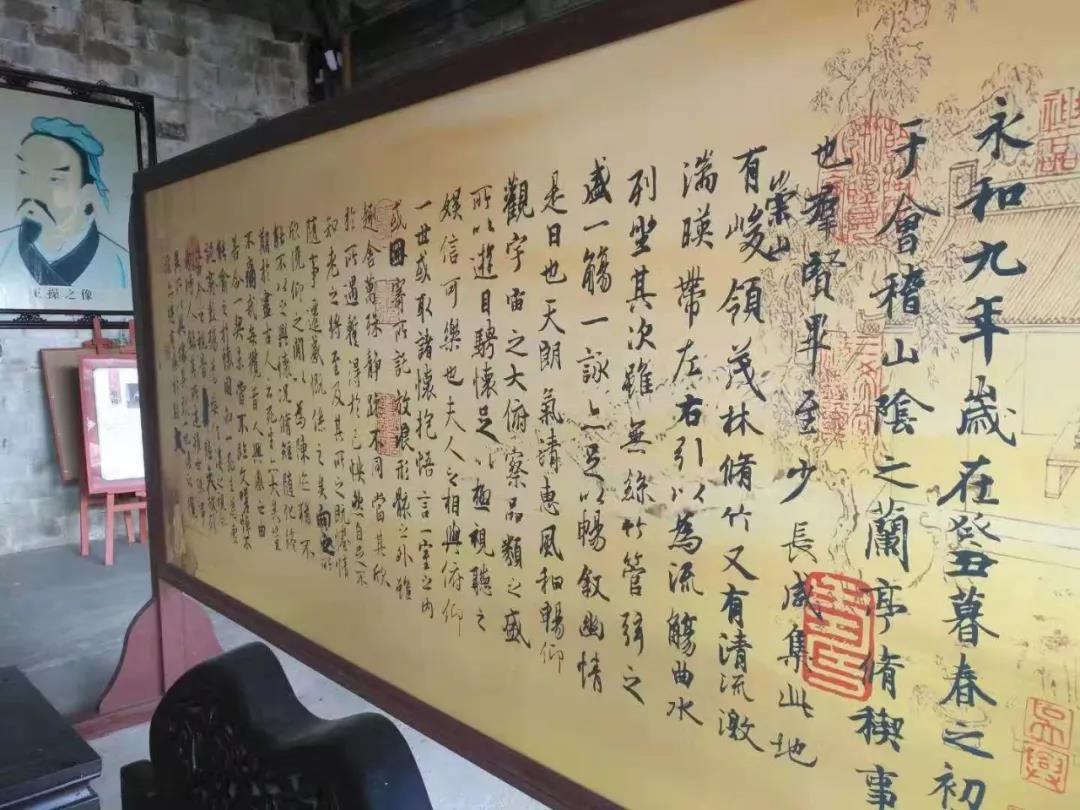 永和九年歲在癸丑暮春之初
于會稽山陰之蘭亭脩禊事
也羣賢畢至少長咸集此地
崇山
有峻領茂林脩竹又有清流激
湍暎帶左右引以為流觴曲水
列坐其次雖無絲竹管弦之
盛一觴一詠亦足以暢敘幽情
是日也天朗氣清惠風和暢仰
觀宇宙之大俯察品類之盛
所以遊目騁懷足以極視聽之
娛信可樂也夫人之相與俯仰
一世或取諸懷抱悟言一室之內
或因寄所託放浪形骸之外雖
趣舍萬殊靜躁不同當其欣
於所遇暫得於己快然自足不
知老之將至及其所之既惓情
隨事遷感慨係之矣向之所
欣俛仰之閒以為陳迹猶不
能不以之興懷況脩短隨化終
期於盡古人云死生亦大矣豈
不痛哉每攬昔人興感之由
若合一契未嘗不臨文嗟悼不
王操之像